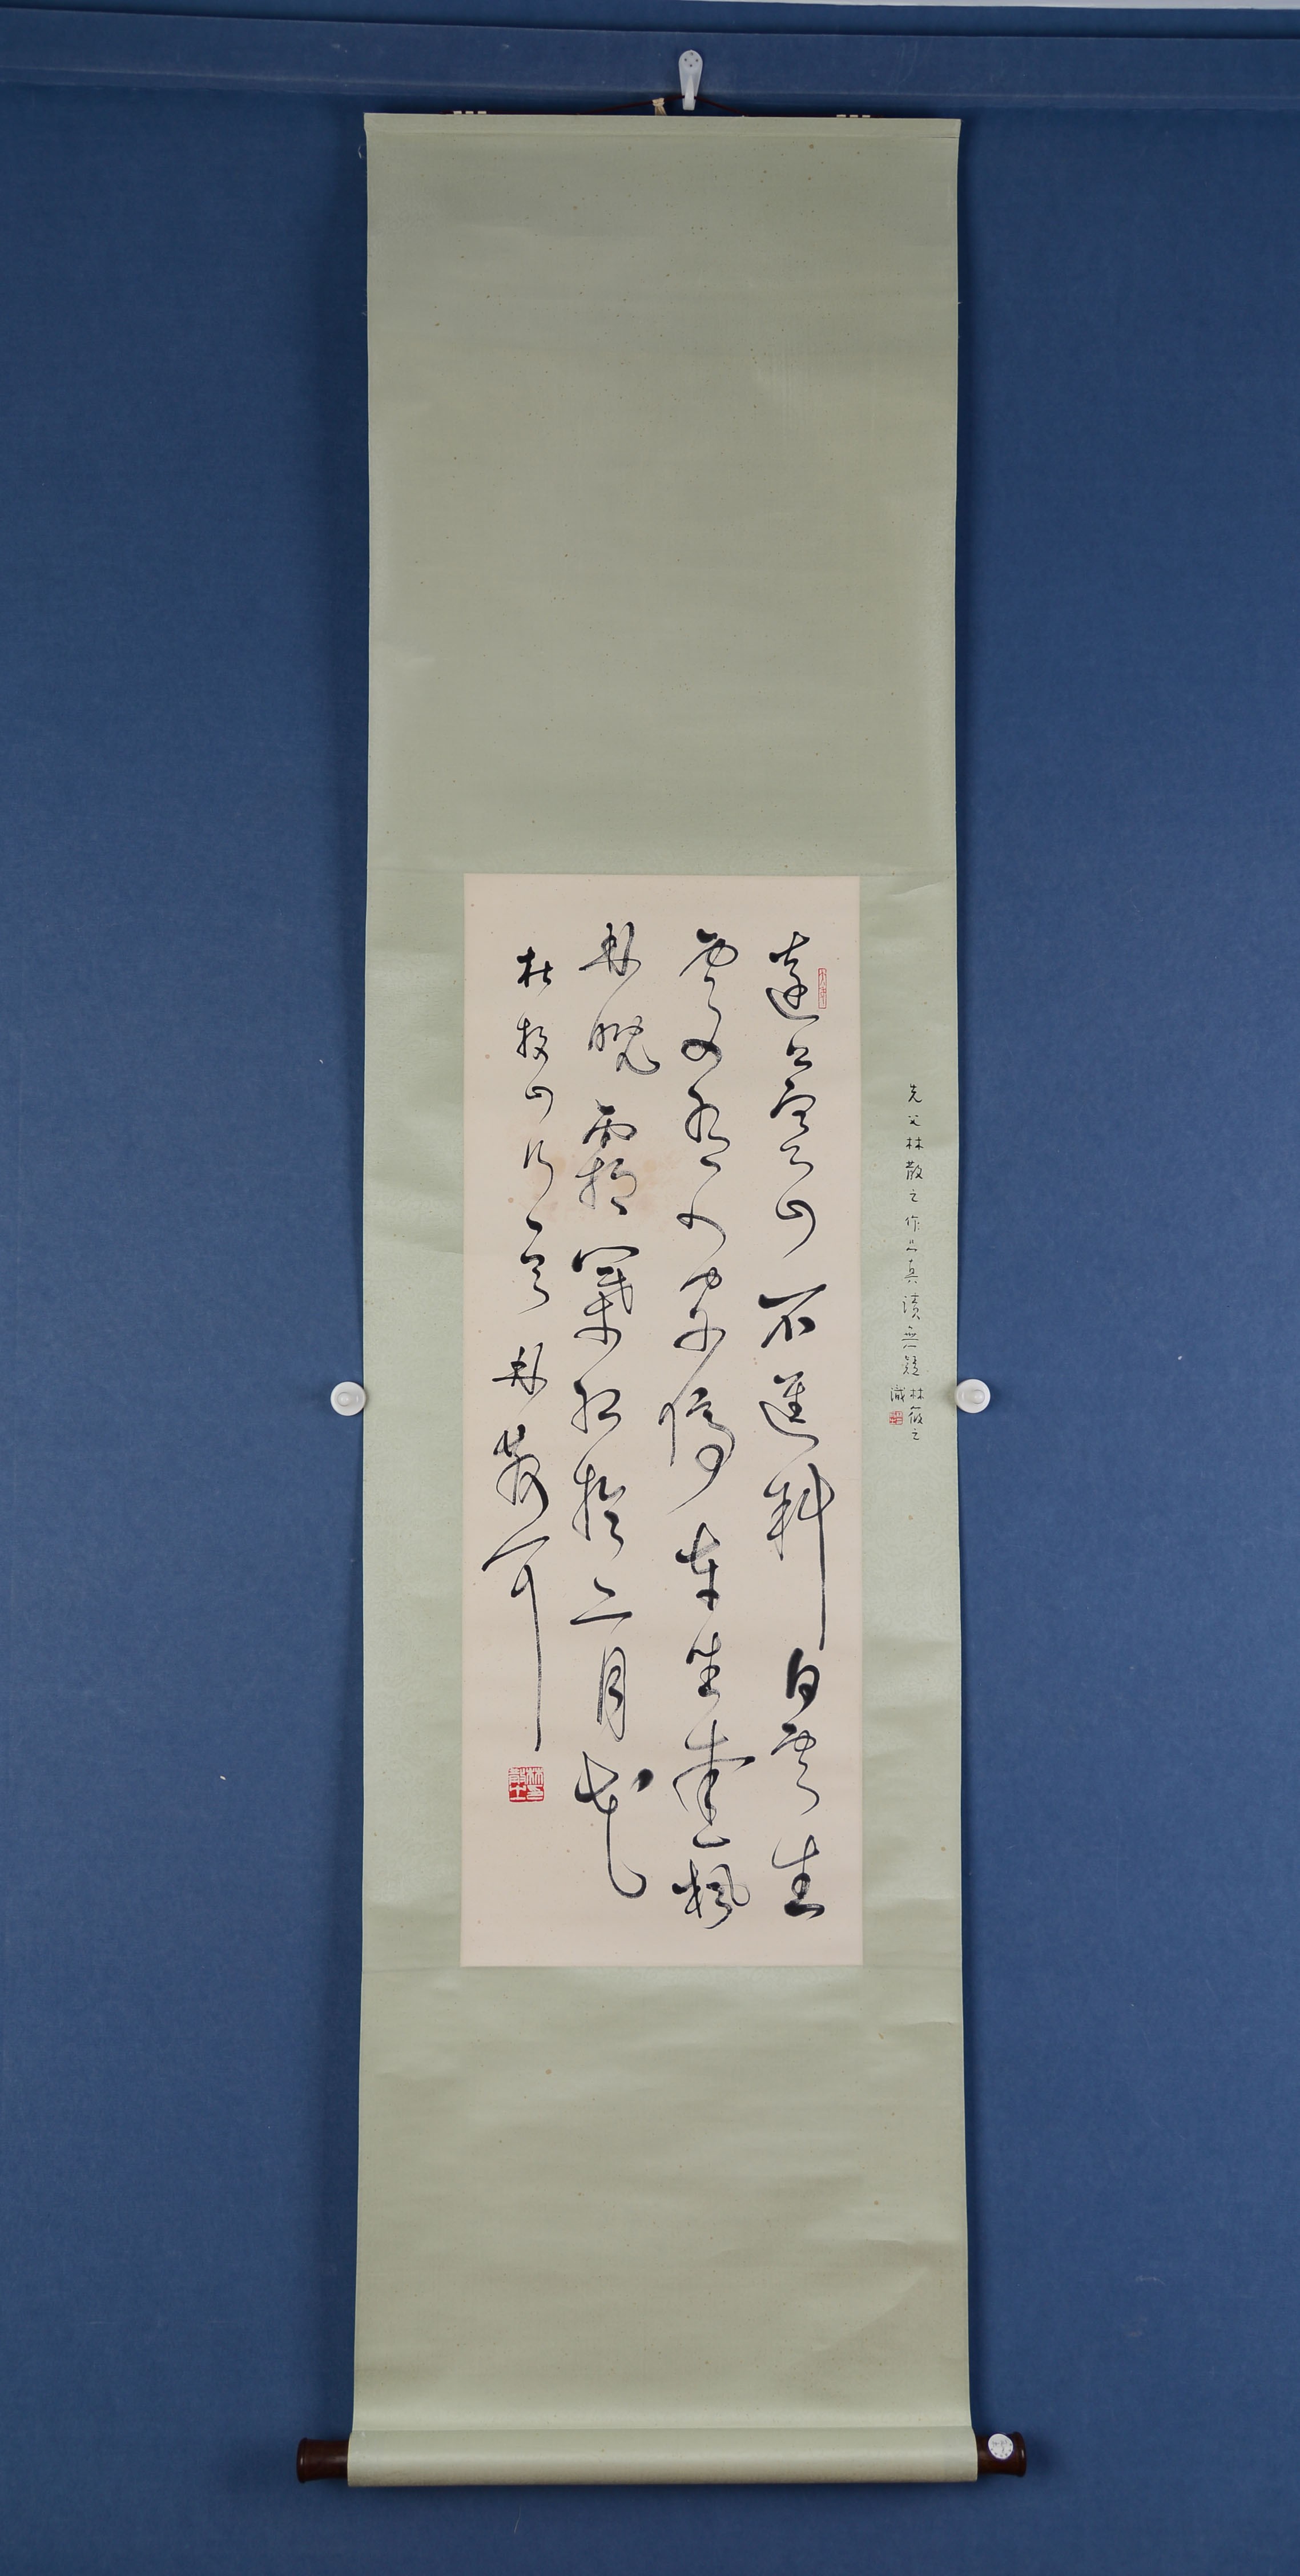 先父林散之作品真蹟無疑 林筱之
識
遠上寒山石逕斜白雲生
處有人家停車坐愛楓
林晚霜葉紅於二月花
杜牧山行一首林散耳